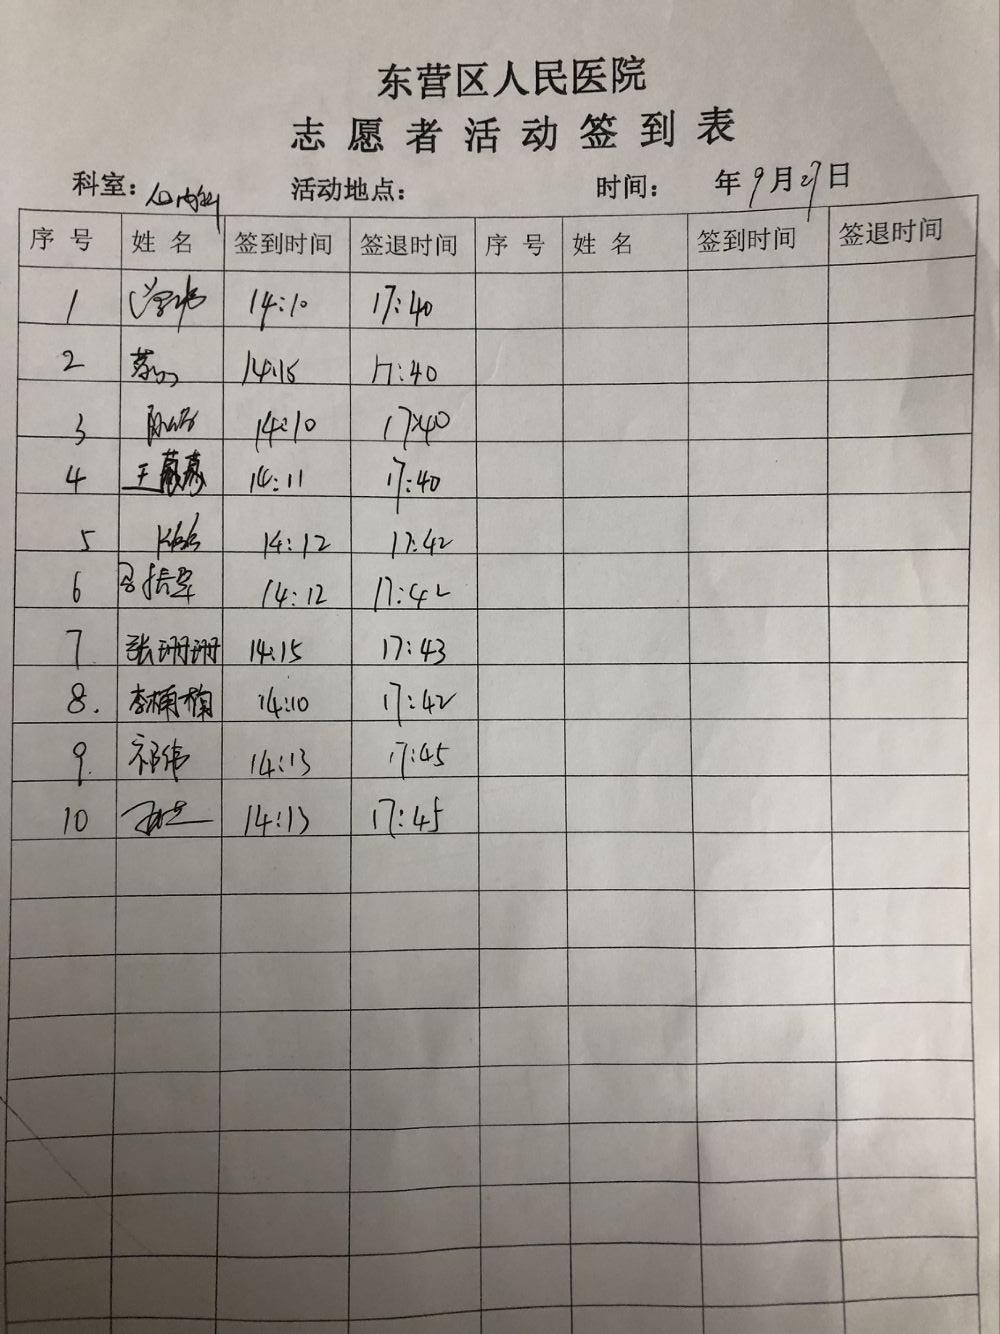 东营区人民医院
志愿者活动签到表
科室：心内科 活动地点： 时间： 年9月27日
序号 姓名 签到时间 签退时间 序号 姓名 签到时间 签退时间
1 14:10 17:40
2 14:15 17:40
3 14:10 17:40
4 王 14:11 17:40
5 14:12 17:42
6 14:12 17:42
7 张珊珊 14:15 17:43
8. 李楠楠 14:10 17:42
9. 祁伟 14:13 17:45
10 14:13 17:45